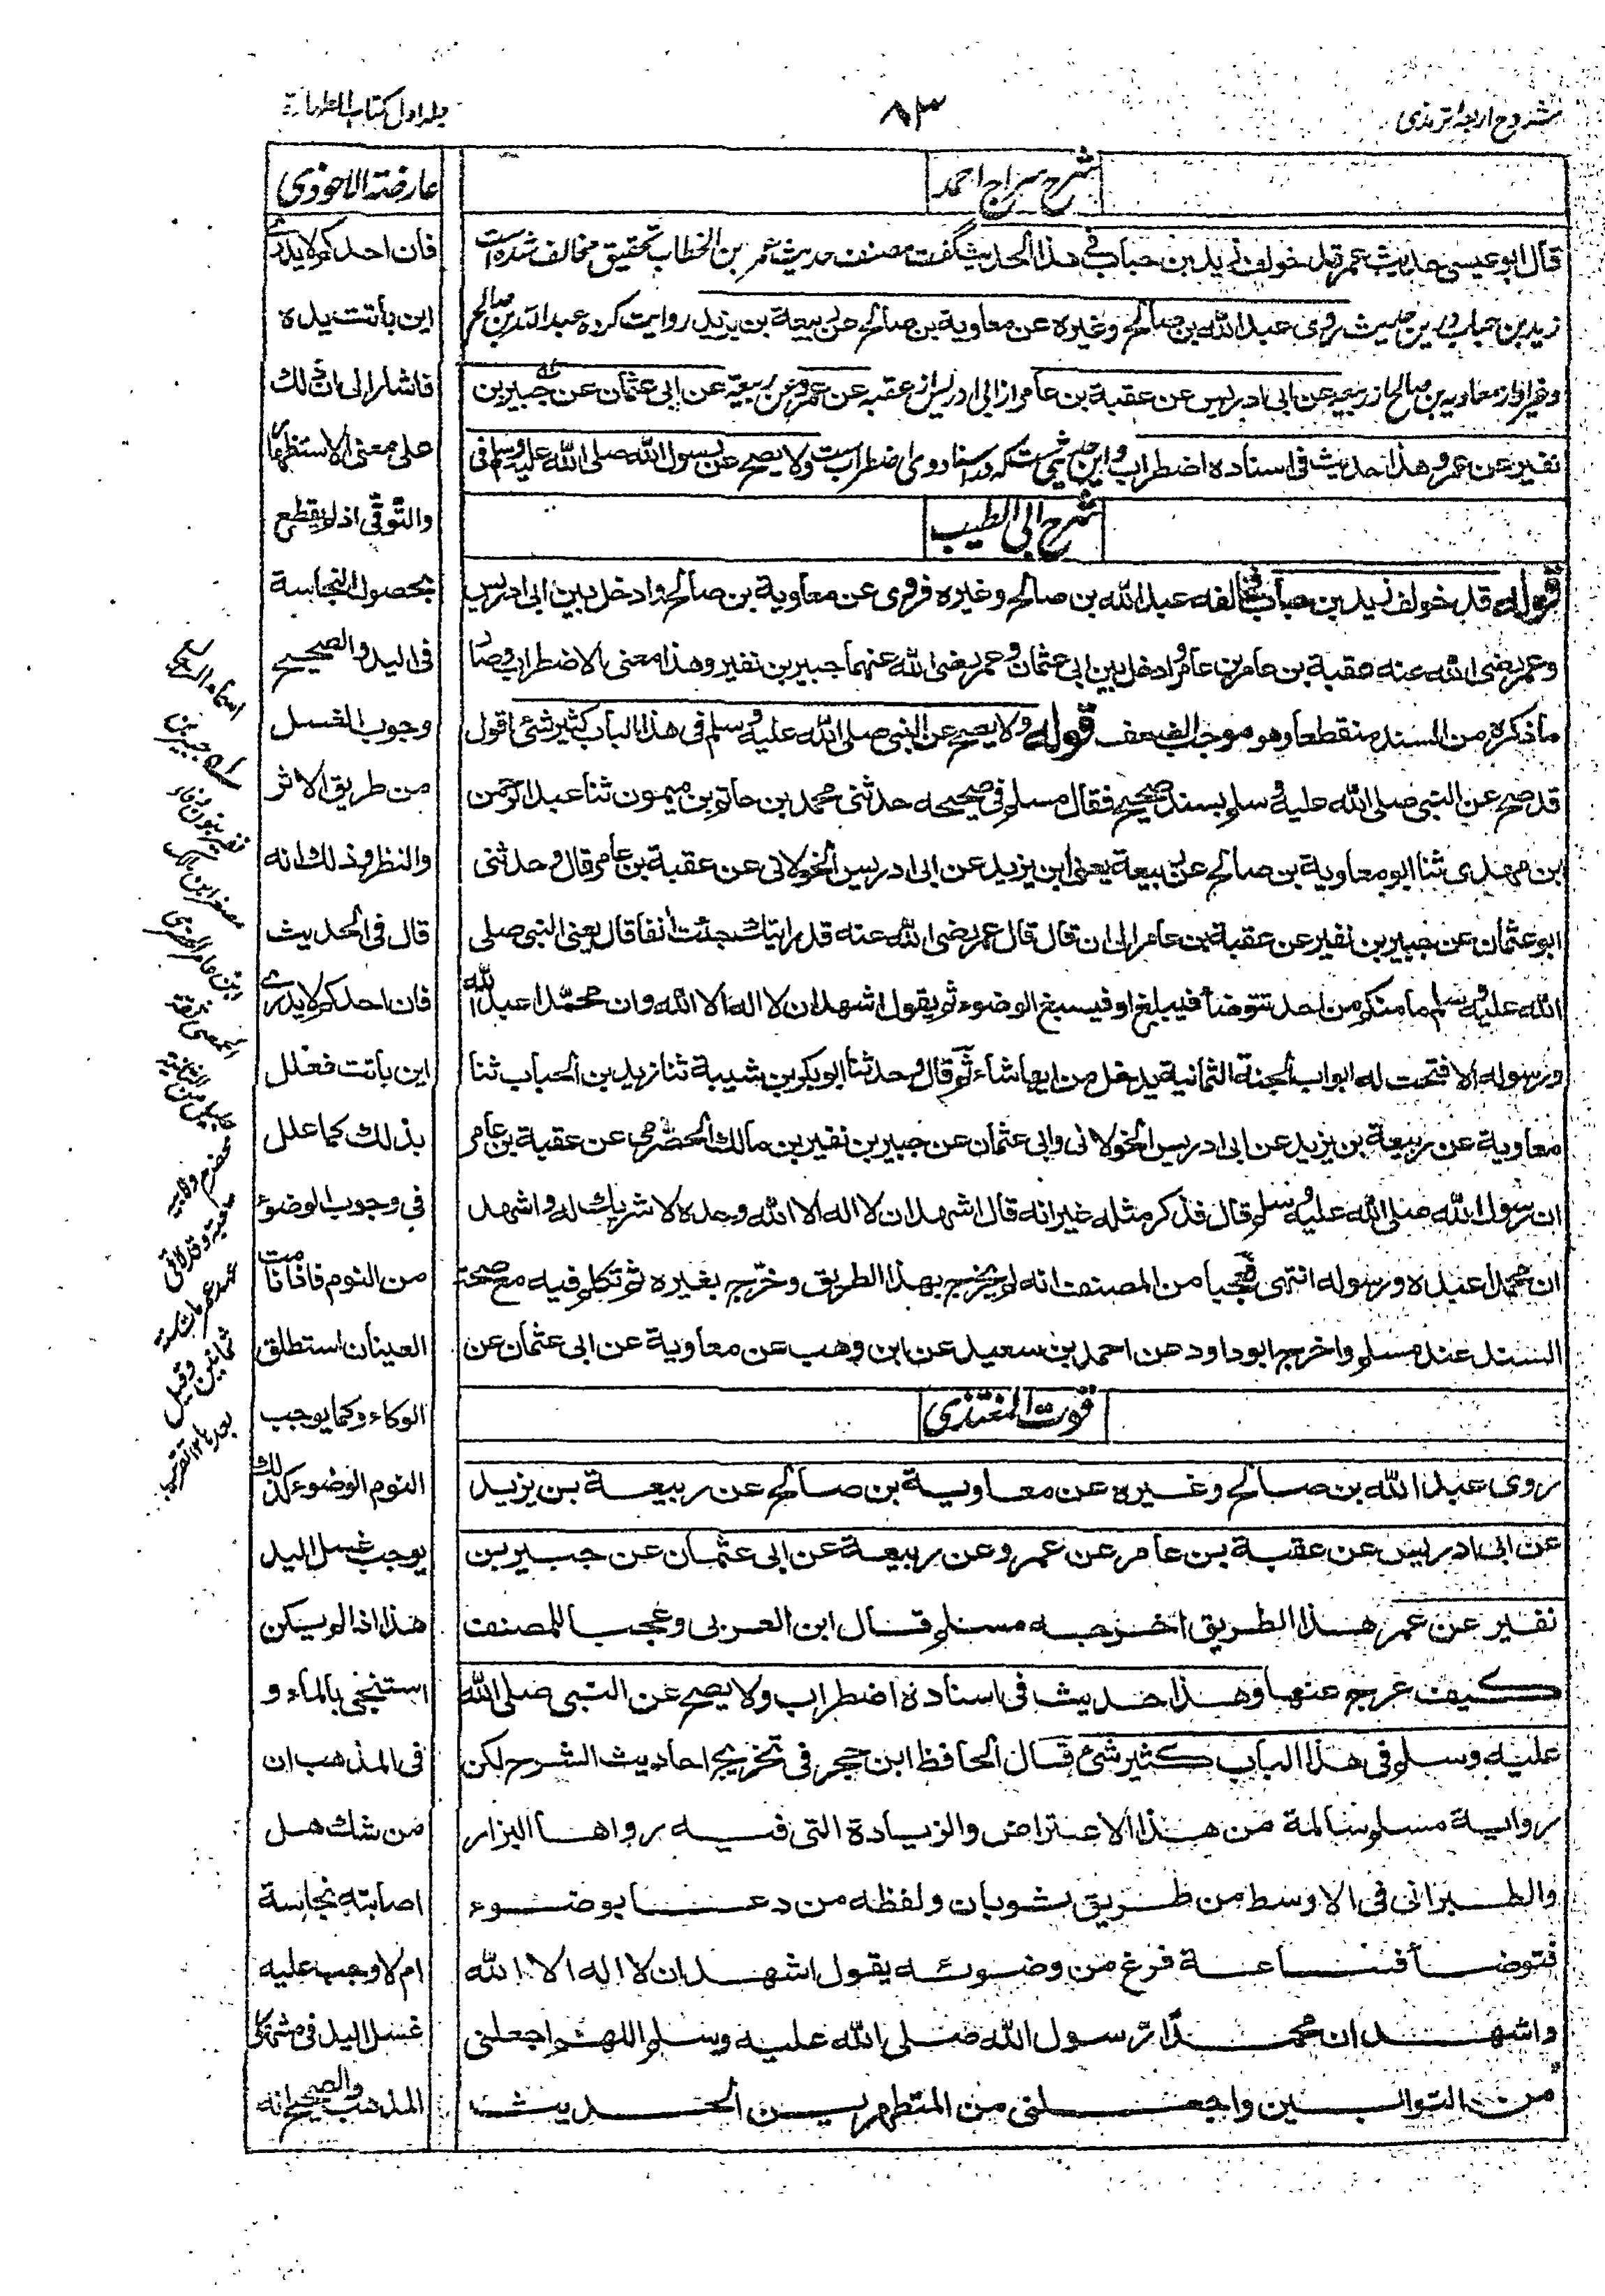 شروح اربعہ ترمذی
٨٣
جلد اول کتاب الطهارة
شرح سراج احمد
قال ابو عيسى حديث عمر قد خولف زيد بن حباب في هذا الحديث گفت مصنف حديث عمر بن الخطاب تحقيق مخالف شده است
زيد بن حباب درين حديث روى عبد الله بن صالح وغيره عن معاوية بن صالح عن ربيعة بن يزيد روايت کرده عبد الله بن صالح
وغير او از معاويه بن صالح از ربيعه عن ابى ادريس عن عقبة بن عامر از ابى ادريس از عقبه عن عمر وعن ربيعة عن ابى عثمان عن جبير بن
نفير عن عمر وهذا حديث فى اسناده اضطراب واين حديثيست که در اسناد وى اضطراب ست ولا يصح عن رسول الله صلى الله عليه وسلم فى
شرح ابى الطيب
قوله قد خولف زيد بن حباب خالفه عبد الله بن صالح وغيره فروى عن معاوية بن صالح وادخل بين ابى ادريس
وعمر رضى الله عنه عقبة بن عامر وادخل بين ابى عثمان وعمر رضى الله عنهما جبير بن نفير وهذا معنى بالاضطراب وصار
ما ذكره من السند منقطعا وهو موجب الضعف قوله ولا يصح عن النبى صلى الله عليه وسلم فى هذا الباب كثير شئ اقول
قد صح عن النبى صلى الله عليه وسلم بسند صحيح فقال مسلم فى صحيحه حدثنى محمد بن حاتم بن ميمون ثنا عبد الرحمن
بن مهدى ثنا ابو معاوية بن صالح عن ربيعة يعنى ابن يزيد عن ابى ادريس الخولانى عن عقبة بن عامر قال وحدثنى
ابو عثمان عن جبير بن نفير عن عقبة بن عامر الى ان قال قال عمر رضى الله عنه قد رايتك جئت أنفا قال يعنى النبى صلى
الله عليه وسلم ما منكم من احد تتوضأ فيبلغ او فيسبغ الوضوء ثم يقول اشهد ان لا اله الا الله وان محمدا عبد الله
ورسوله الا فتحت له ابواب الجنة الثمانية يدخل من ايها شاء ثم قال وحدثنا ابو بكر بن شيبة ثنا زيد بن الحباب ثنا
معاوية عن ربيعة بن يزيد عن ابى ادريس الخولانى وابى عثمان عن جبير بن نفير بن مالك الحضرمى عن عقبة بن عامر
ان رسول الله صلى الله عليه وسلم قال فذكر مثله غير انه قال اشهد ان لا اله الا الله وحده لا شريك له واشهد
ان محمدا عبده ورسوله انتهى فعجبا من المصنف انه لم يخرج بهذا الطريق وخرج بغيره ثم تكلم فيه مع صحة
السند عند مسلم واخرج ابو داود عن احمد بن سعيد عن ابن وهب عن معاوية عن ابى عثمان عن
قوت المغتذى
روى عبد الله بن صالح وغيره عن معاوية بن صالح عن ربيعة بن يزيد
عن ابى ادريس عن عقبة بن عامر عن عمر وعن ربيعة عن ابى عثمان عن جبير بن
نفير عن عمر هذا الطريق اخرجه مسلم قال ابن العربى وعجبا للمصنف
كيف عرج عنها وهذا حديث فى اسناده اضطراب ولا يصح عن النبى صلى الله
عليه وسلم فى هذا الباب كثير شئ قال الحافظ ابن حجر فى تخريج احاديث الشرح لكن
رواية مسلم سالمة من هذا الاعتراض والزيادة التى فيه رواها البزار
والطبرانى فى الاوسط من طريق بثوبان ولفظه من دعا بوضوء
فتوضأ فساعة فرغ من وضوئه يقول اشهد ان لا اله الا الله
واشهد ان محمدا رسول الله صلى الله عليه وسلم اللهم اجعلنى
من التوابين واجعلنى من المتطهرين الحديث
عارضة الاحوذى
فان احدكم لا يدرى
اين باتت يده
فاشار الى ان ذلك
على معنى الاستظهار
والتوقى اذ لم يقطع
بحصول النجاسة
فى اليد والصحيح
وجوب الغسل
من طريق الاثر
والنظر وذلك انه
قال فى الحديث
فان احدكم لا يدرى
اين باتت فعلل
بذلك كما علل
فى وجوب الوضوء
من النوم فاذا نامت
العينان استطلق
الوكاء وكما يوجب
النوم الوضوء كذلك
يوجب غسل اليد
هذا اذا لم يكن
استنجى بالماء و
فى المذهب ان
من شك هل
اصابته نجاسة
ام لا وجب عليه
غسل اليد فى مشهور
المذهب والصحيح انه
له جبير بن
نفير بنون وفاء
مصغرا ابن مالك
بن عامر الحضرمى
الحمصى ثقة
جليل من الثانية
مخضرم ولابيه
صحبة
ثمانين وقيل
بعدها التقريب